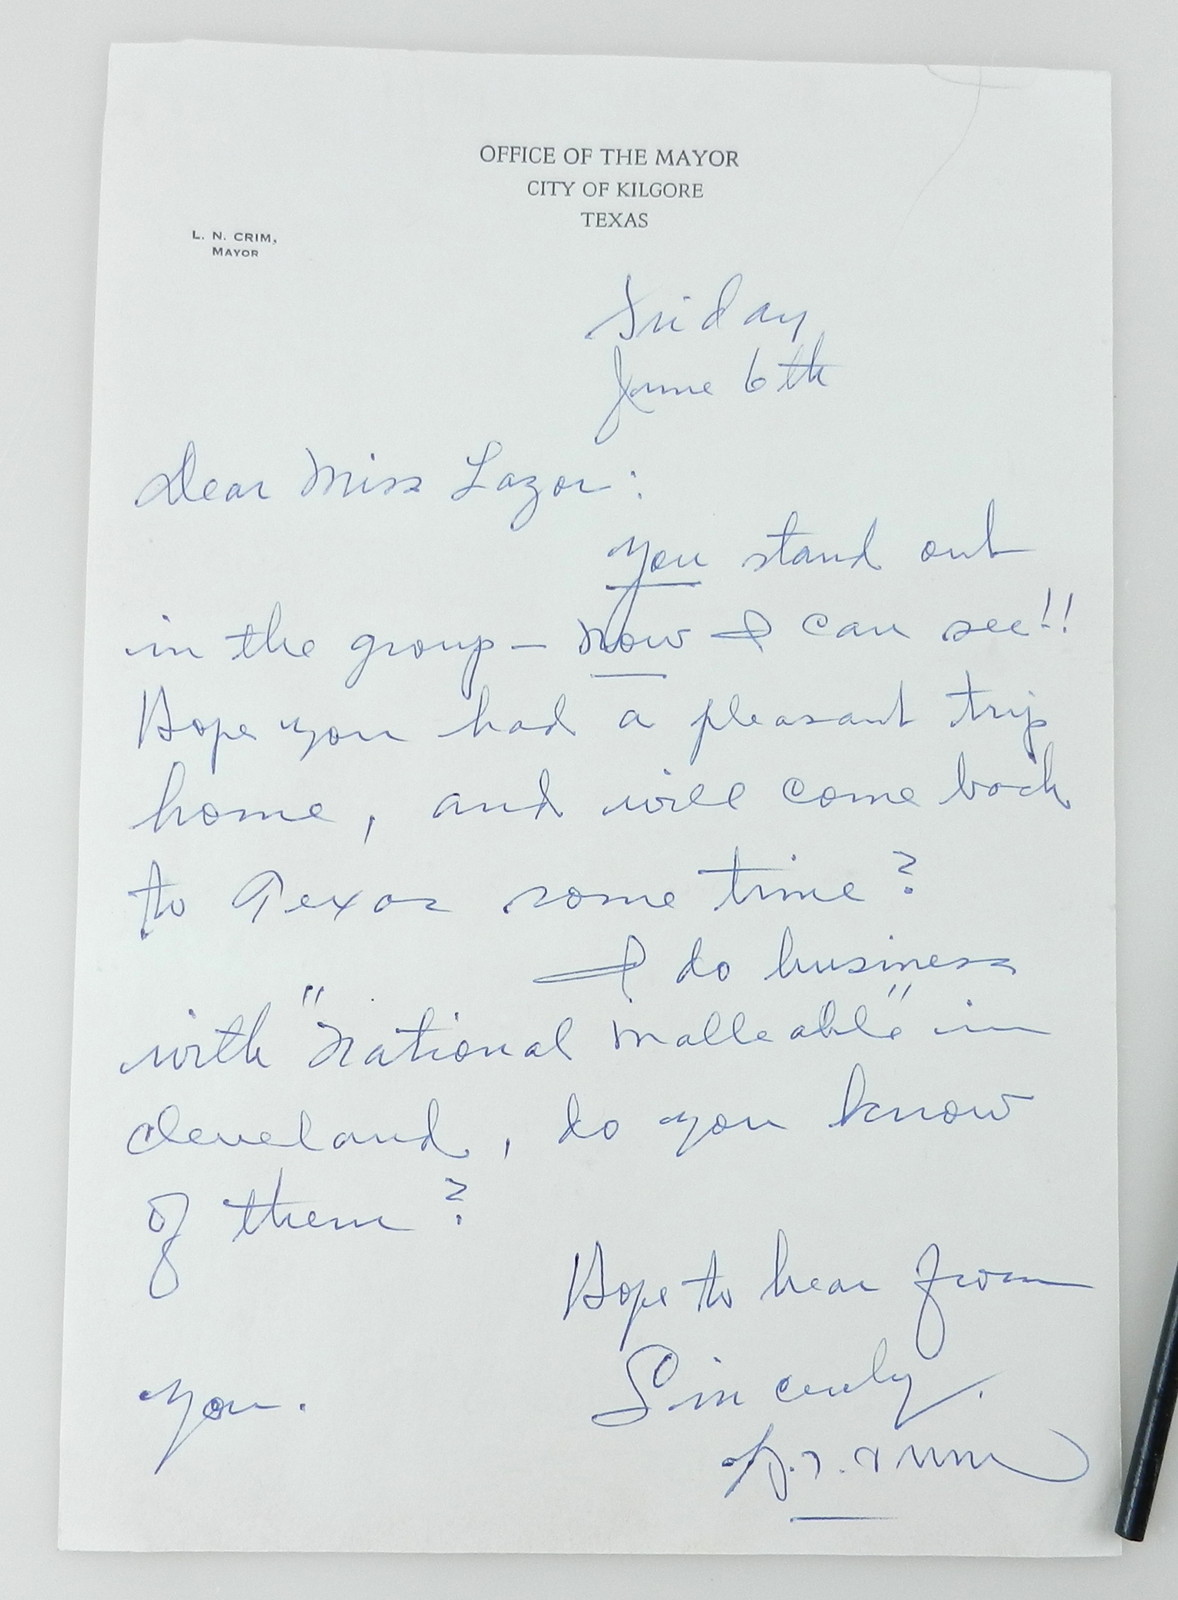 OFFICE OF THE MAYOR
CITY OF KILGORE
TEXAS
L. N. CRIM,
MAYOR
Friday
June 6th
Dear Miss Lazor:
You stand out
in the group - now I can see!!
Hope you had a pleasant trip
home, and will come back
to Texas some time?
I do business
with "National Malleable" in
Cleveland, do you know
of them?
Hope to hear from
you.
Sincerely,